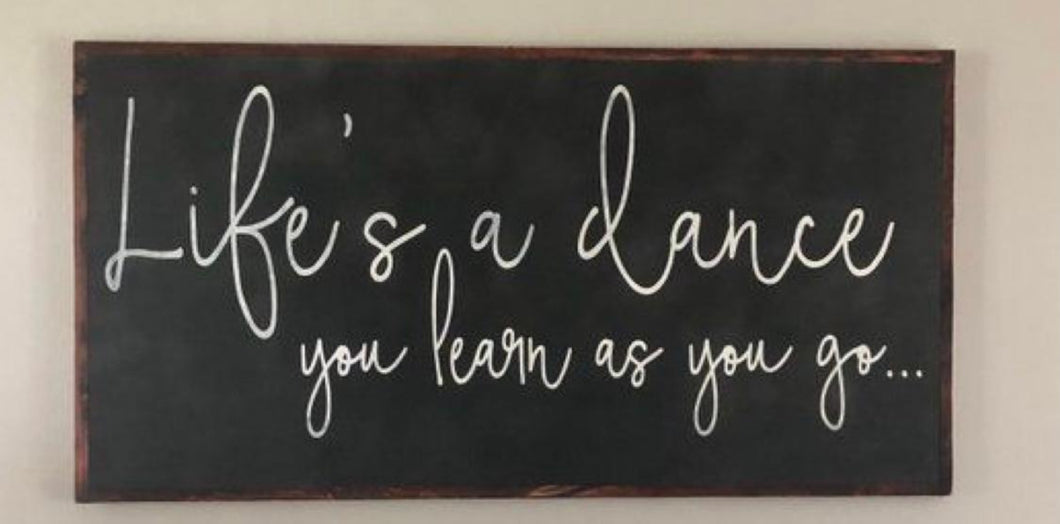 Life's a dance
you learn as you go...